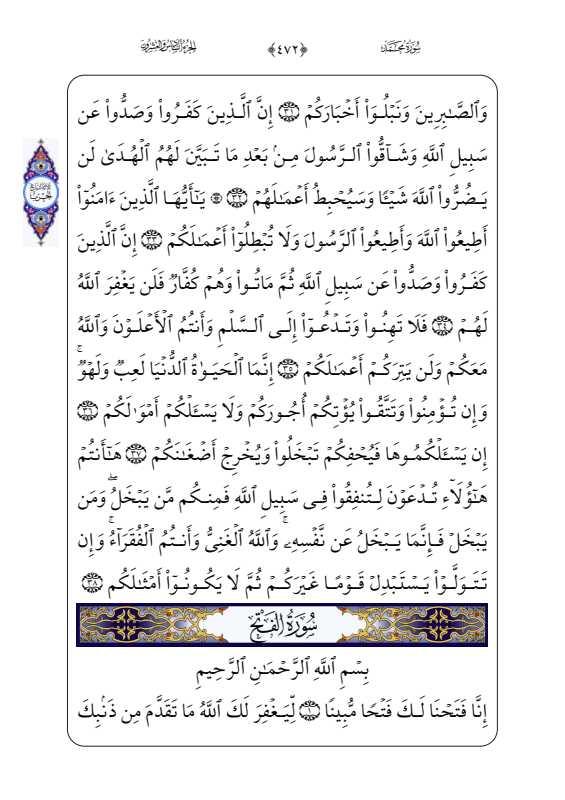 سُورَةُ مُحَمَّدٍ ﴿٤٧٢﴾ الجُزْءُ السَّادِسُ وَالعِشْرُونَ
وَٱلصَّـٰبِرِينَ وَنَبْلُوَا۟ أَخْبَارَكُمْ ٣١ إِنَّ ٱلَّذِينَ كَفَرُوا۟ وَصَدُّوا۟ عَن
سَبِيلِ ٱللَّهِ وَشَآقُّوا۟ ٱلرَّسُولَ مِنۢ بَعْدِ مَا تَبَيَّنَ لَهُمُ ٱلْهُدَىٰ لَن
يَضُرُّوا۟ ٱللَّهَ شَيْـًٔا وَسَيُحْبِطُ أَعْمَـٰلَهُمْ ٣٢ ۞ يَـٰٓأَيُّهَا ٱلَّذِينَ ءَامَنُوٓا۟
أَطِيعُوا۟ ٱللَّهَ وَأَطِيعُوا۟ ٱلرَّسُولَ وَلَا تُبْطِلُوٓا۟ أَعْمَـٰلَكُمْ ٣٣ إِنَّ ٱلَّذِينَ
كَفَرُوا۟ وَصَدُّوا۟ عَن سَبِيلِ ٱللَّهِ ثُمَّ مَاتُوا۟ وَهُمْ كُفَّارٌ فَلَن يَغْفِرَ ٱللَّهُ
لَهُمْ ٣٤ فَلَا تَهِنُوا۟ وَتَدْعُوٓا۟ إِلَى ٱلسَّلْمِ وَأَنتُمُ ٱلْأَعْلَوْنَ وَٱللَّهُ
مَعَكُمْ وَلَن يَتِرَكُمْ أَعْمَـٰلَكُمْ ٣٥ إِنَّمَا ٱلْحَيَوٰةُ ٱلدُّنْيَا لَعِبٌ وَلَهْوٌ ۚ
وَإِن تُؤْمِنُوا۟ وَتَتَّقُوا۟ يُؤْتِكُمْ أُجُورَكُمْ وَلَا يَسْـَٔلْكُمْ أَمْوَٰلَكُمْ ٣٦
إِن يَسْـَٔلْكُمُوهَا فَيُحْفِكُمْ تَبْخَلُوا۟ وَيُخْرِجْ أَضْغَـٰنَكُمْ ٣٧ هَـٰٓأَنتُمْ
هَـٰٓؤُلَآءِ تُدْعَوْنَ لِتُنفِقُوا۟ فِى سَبِيلِ ٱللَّهِ فَمِنكُم مَّن يَبْخَلُ ۖ وَمَن
يَبْخَلْ فَإِنَّمَا يَبْخَلُ عَن نَّفْسِهِۦ ۚ وَٱللَّهُ ٱلْغَنِىُّ وَأَنتُمُ ٱلْفُقَرَآءُ ۚ وَإِن
تَتَوَلَّوْا۟ يَسْتَبْدِلْ قَوْمًا غَيْرَكُمْ ثُمَّ لَا يَكُونُوٓا۟ أَمْثَـٰلَكُم ٣٨
سُورَةُ الفَتْحِ
بِسْمِ ٱللَّهِ ٱلرَّحْمَـٰنِ ٱلرَّحِيمِ
إِنَّا فَتَحْنَا لَكَ فَتْحًا مُّبِينًا ١ لِّيَغْفِرَ لَكَ ٱللَّهُ مَا تَقَدَّمَ مِن ذَنۢبِكَ